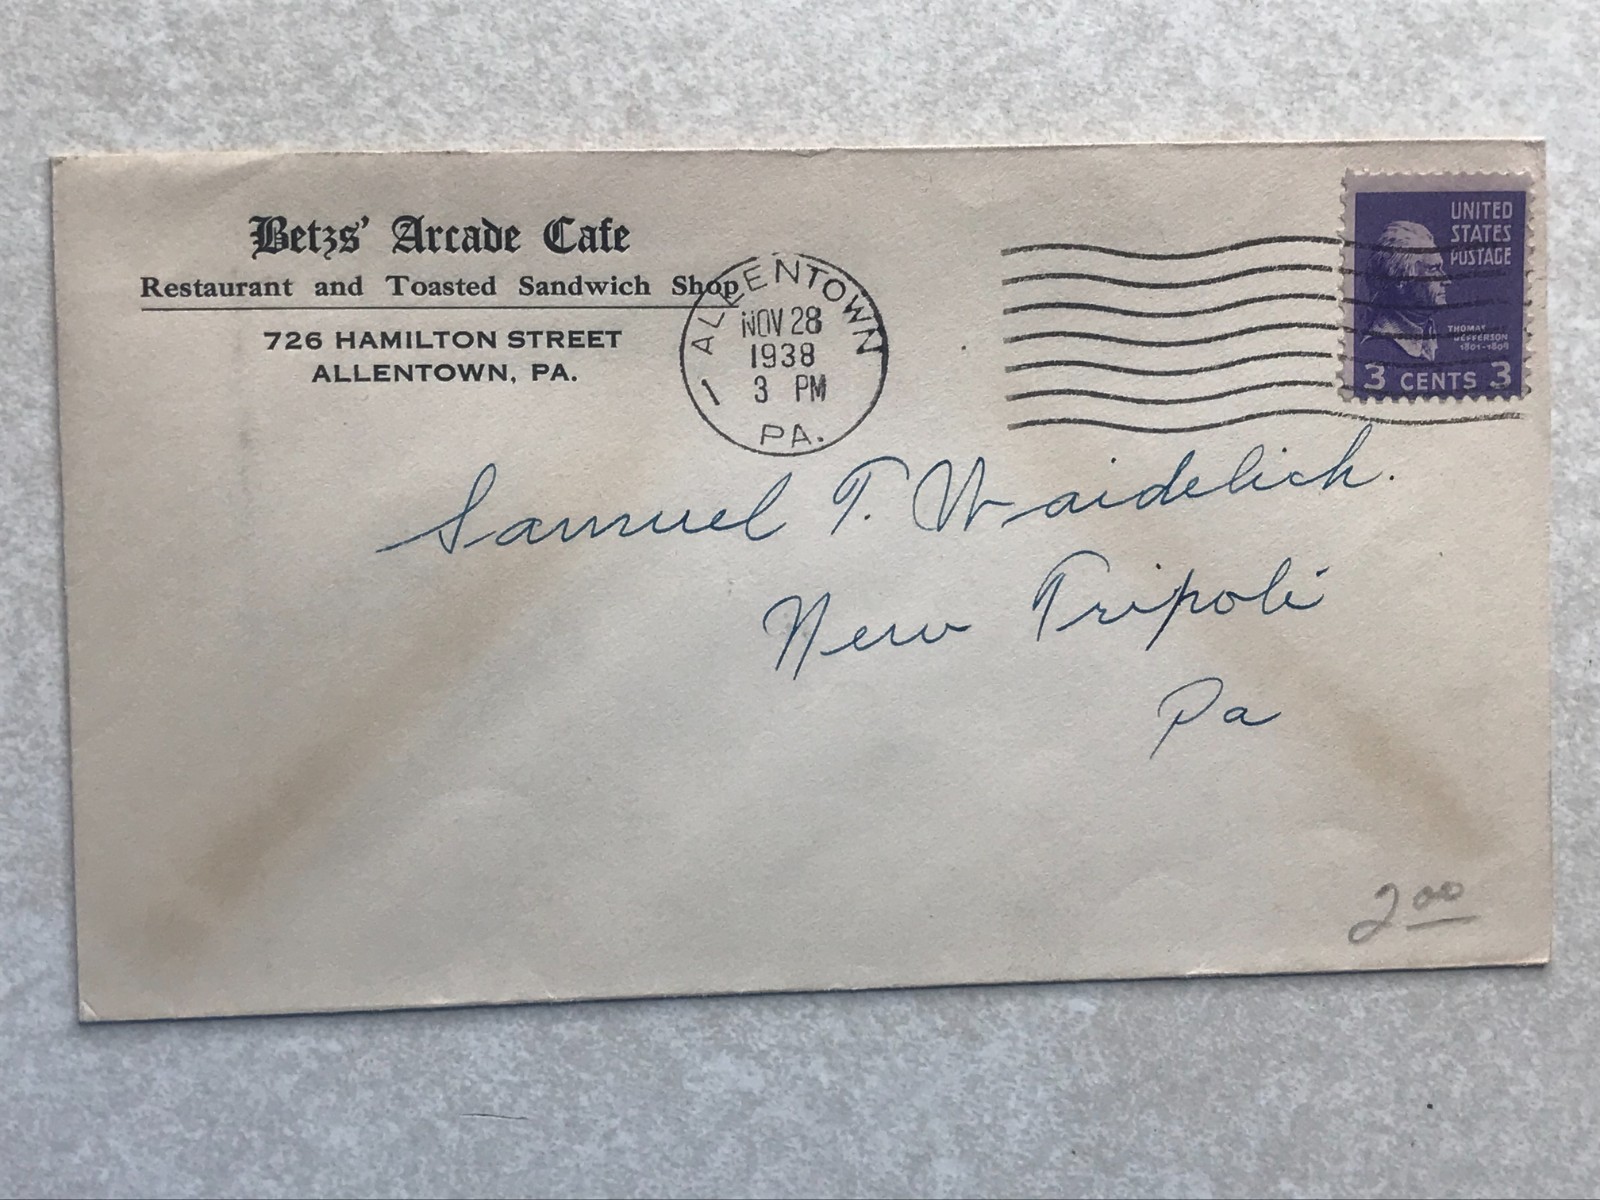 Betzs' Arcade Cafe
Restaurant and Toasted Sandwich Shop
726 HAMILTON STREET
ALLENTOWN, PA.
ALLENTOWN
1
NOV 28
1938
3 PM
PA.
UNITED
STATES
POSTAGE
THOMAS
JEFFERSON
1801-1809
3 CENTS 3
Samuel T. Waidelich.
New Tripoli
Pa
2.00